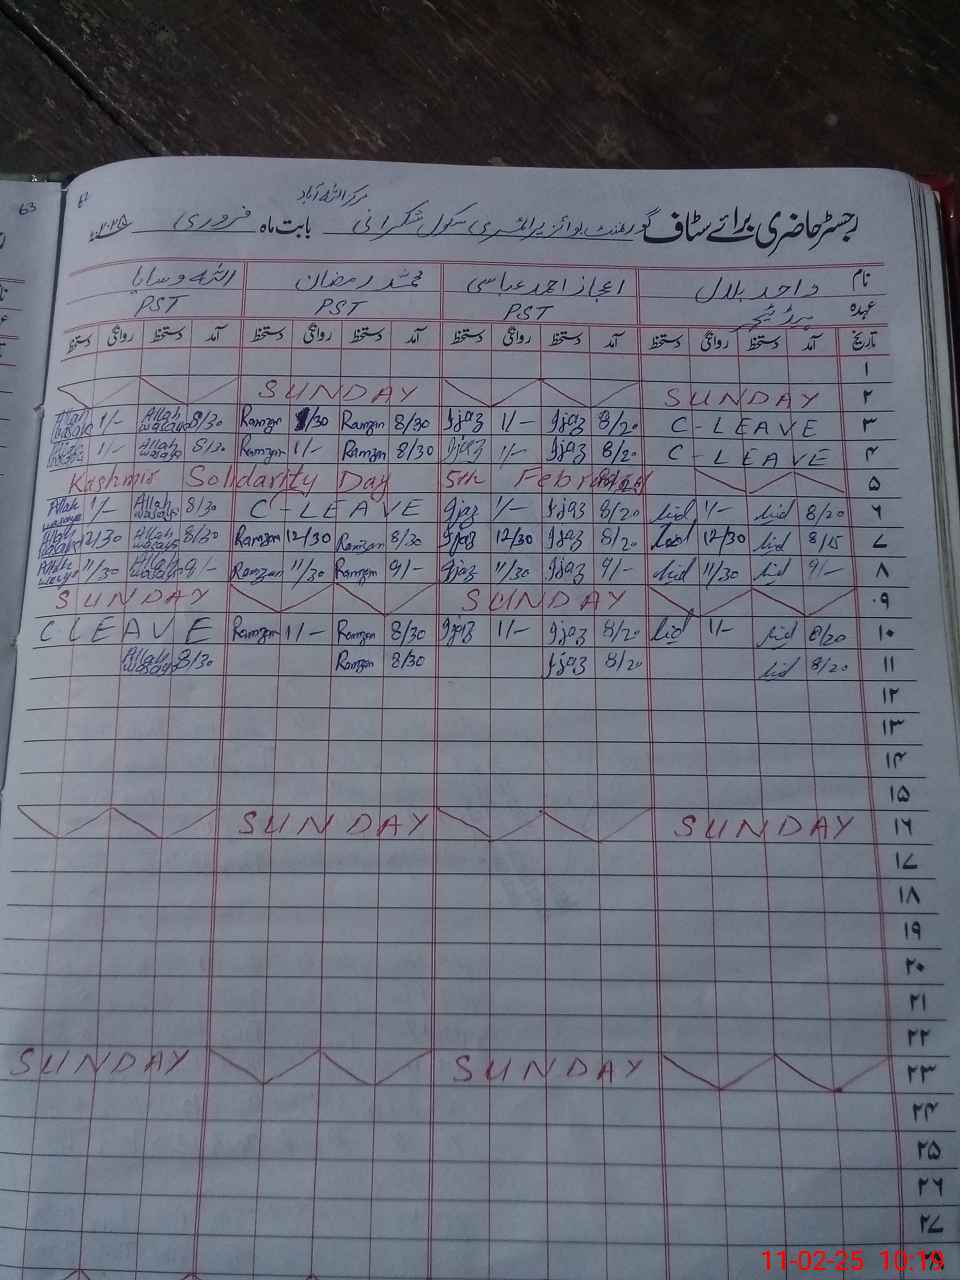 63
62
مرکز اللہ آباد
رجسٹر حاضری برائے سٹاف گورنمنٹ بوائز پرائمری سکول شکرانی بابت ماہ فروری ۲۰۲۵
نام واحد بلال اعجاز احمد عباسی محمد رمضان اللہ وسایا
عہدہ ہیڈ ٹیچر PST PST PST
تاریخ آمد دستخط روانگی دستخط آمد دستخط روانگی دستخط آمد دستخط روانگی دستخط آمد دستخط روانگی دستخط
۱
SUNDAY SUNDAY ۲
Allah wasaya 1/- Allah wasaya 8/30 Ramzan 1/30 Ramzan 8/30 Ijaz 1/- Ijaz 8/20 C-LEAVE ۳
Allah wasaya 1/- Allah wasaya 8/30 Ramzan 1/- Ramzan 8/30 Ijaz 1/- Ijaz 8/20 C-LEAVE ۴
Kashmir Solidarity Day 5th February ۵
Allah wasaya 1/- Allah wasaya 8/30 C-LEAVE Ijaz 1/- Ijaz 8/20 1/- 8/20 ۶
Allah wasaya 12/30 Allah wasaya 8/30 Ramzan 12/30 Ramzan 8/30 Ijaz 12/30 Ijaz 8/20 12/30 8/15 ۷
Allah wasaya 11/30 Allah wasaya 9/- Ramzan 11/30 Ramzan 9/- Ijaz 11/30 Ijaz 9/- 11/30 9/- ۸
SUNDAY SUNDAY ۰۹
C LEAVE Ramzan 1/- Ramzan 8/30 Ijaz 1/- Ijaz 8/20 1/- 8/20 ۱۰
Allah wasaya 8/30 Ramzan 8/30 Ijaz 8/20 8/20 ۱۱
۱۲
۱۳
۱۴
۱۵
SUNDAY SUNDAY ۱۶
۱۷
۱۸
۱۹
۲۰
۲۱
۲۲
SUNDAY SUNDAY ۲۳
۲۴
۲۵
۲۶
۲۷
11-02-25 10:19